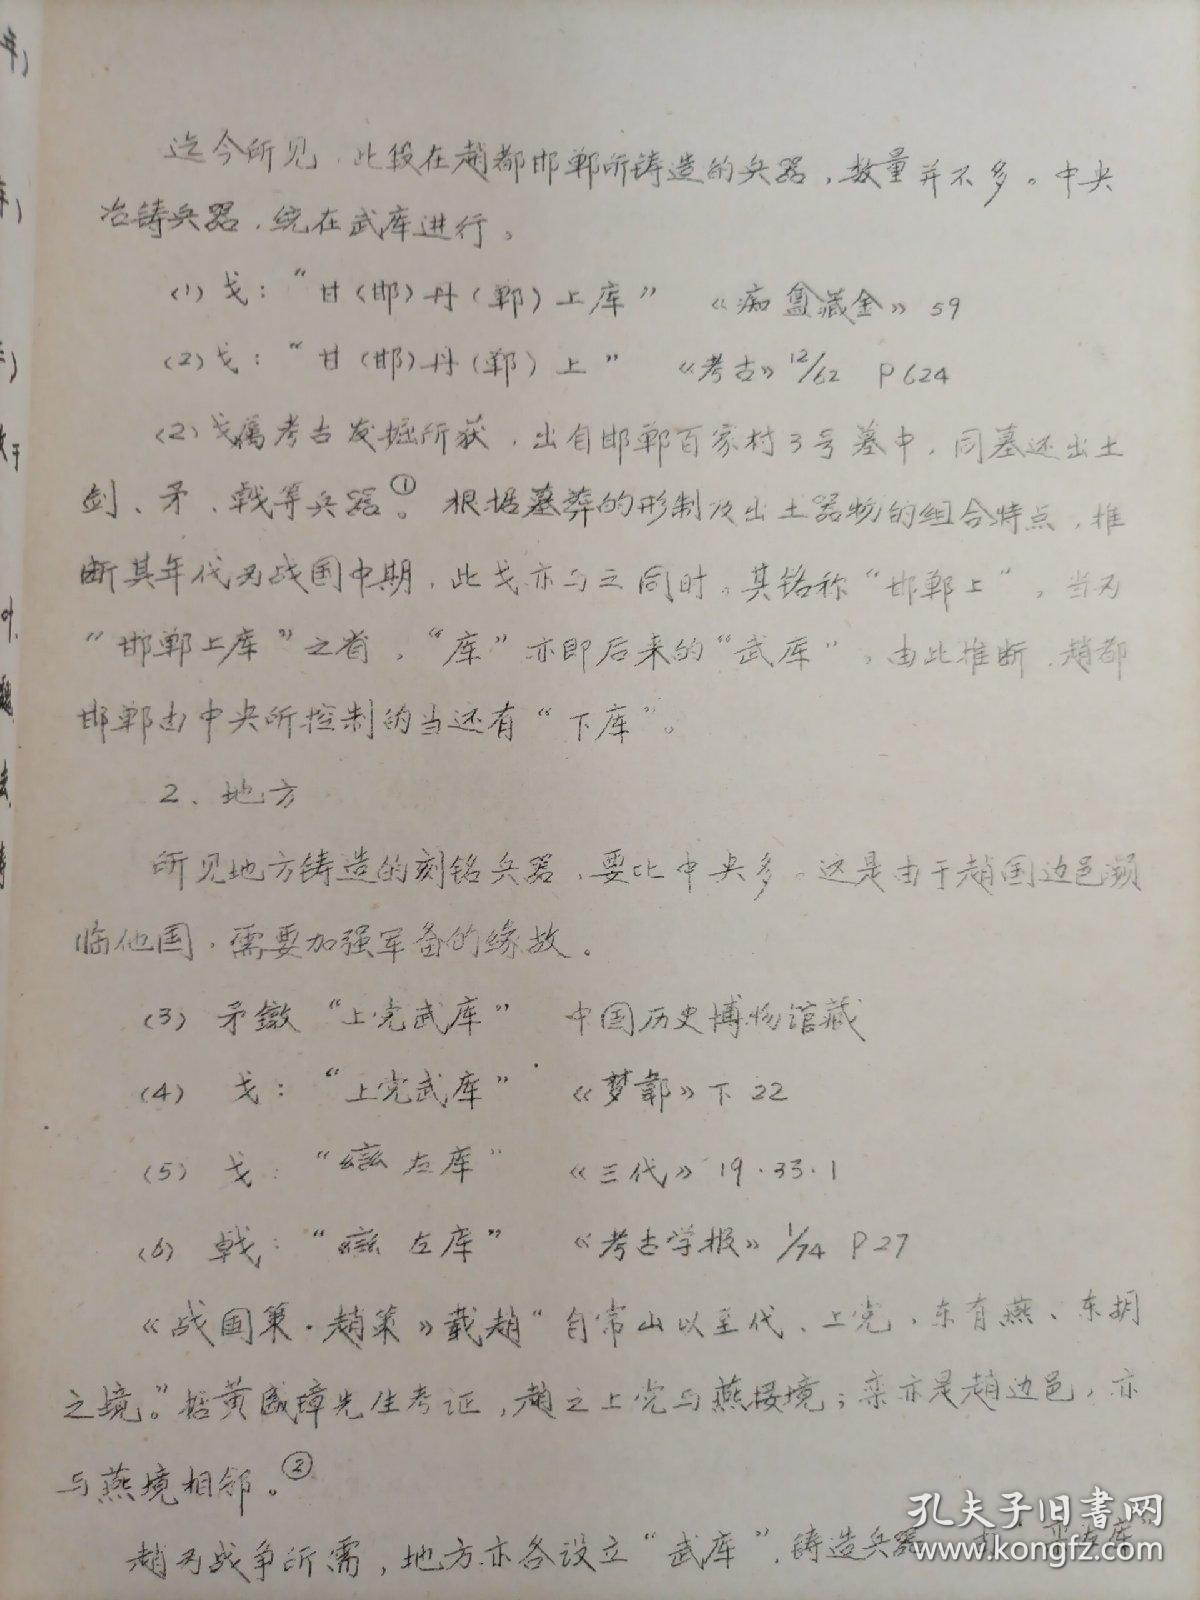 迄今所见，此段在赵都邯郸所铸造的兵器，数量并不多。中央
冶铸兵器，统在武库进行。
(1) 戈：“甘(邯)丹(郸)上库” 《痴盦藏金》59
(2) 戈：“甘(邯)丹(郸)上” 《考古》12/62 P624
(2)戈属考古发掘所获，出自邯郸百家村3号墓中，同墓还出土
剑、矛、戟等兵器。① 根据墓葬的形制及出土器物的组合特点，推
断其年代为战国中期，此戈亦与之同时。其铭称“邯郸上”，当为
“邯郸上库”之省，“库”亦即后来的“武库”，由此推断，趙都
邯郸由中央所控制的当还有“下库”。
2、地方
所见地方铸造的刻铭兵器，要比中央多。这是由于趙国边邑濒
临他国，需要加强军备的缘故。
(3) 矛镦“上党武库” 中国历史博物馆藏
(4) 戈：“上党武库” 《梦郼》下22
(5) 戈：“䜌左库” 《三代》19·33·1
(6) 戟：“䜌左库” 《考古学报》1/74 P27
《战国策·趙策》载趙“自常山以至代、上党，东有燕、东胡
之境。”据黄盛璋先生考证，趙之上党与燕接境；栾亦是趙边邑，亦
与燕境相邻。②
趙为战争所需，地方亦各设立“武库”，铸造兵器
孔夫子旧书网
www.kongfz.com
年)